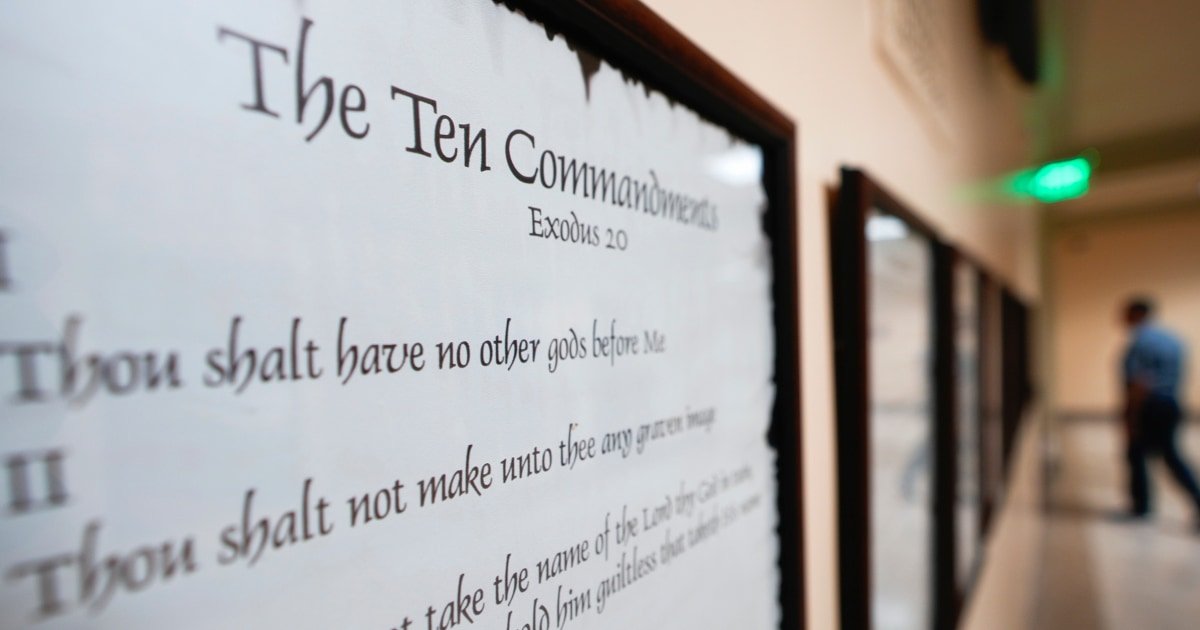 The Ten Commandments
Exodus 20
I
Thou shalt have no other gods before Me
II
Thou shalt not make unto thee any graven image
take the name of the Lord thy God in vain,
hold him guiltless that taketh His name